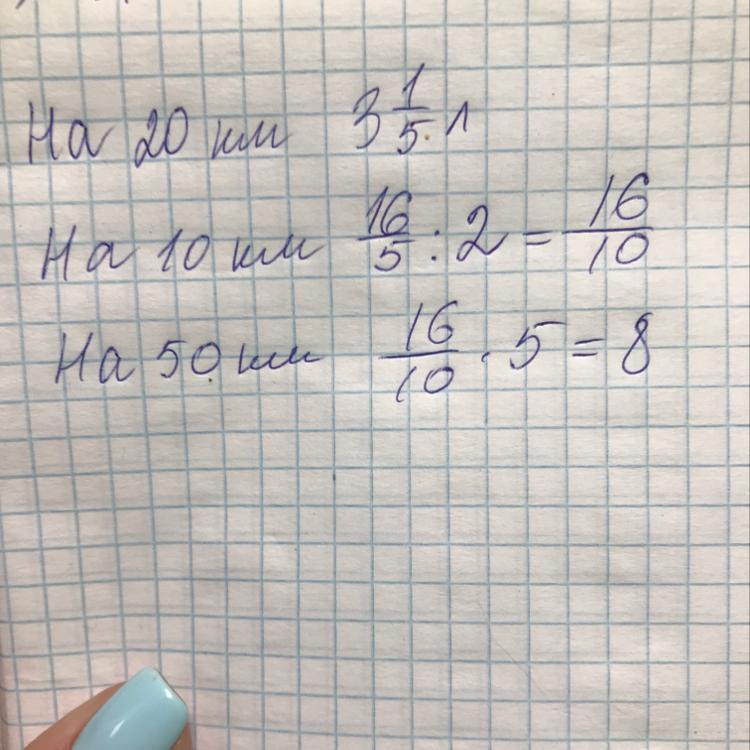 На 20 км 3 1/5 л
На 10 км 16/5 : 2 = 16/10
На 50 км 16/10 · 5 = 8